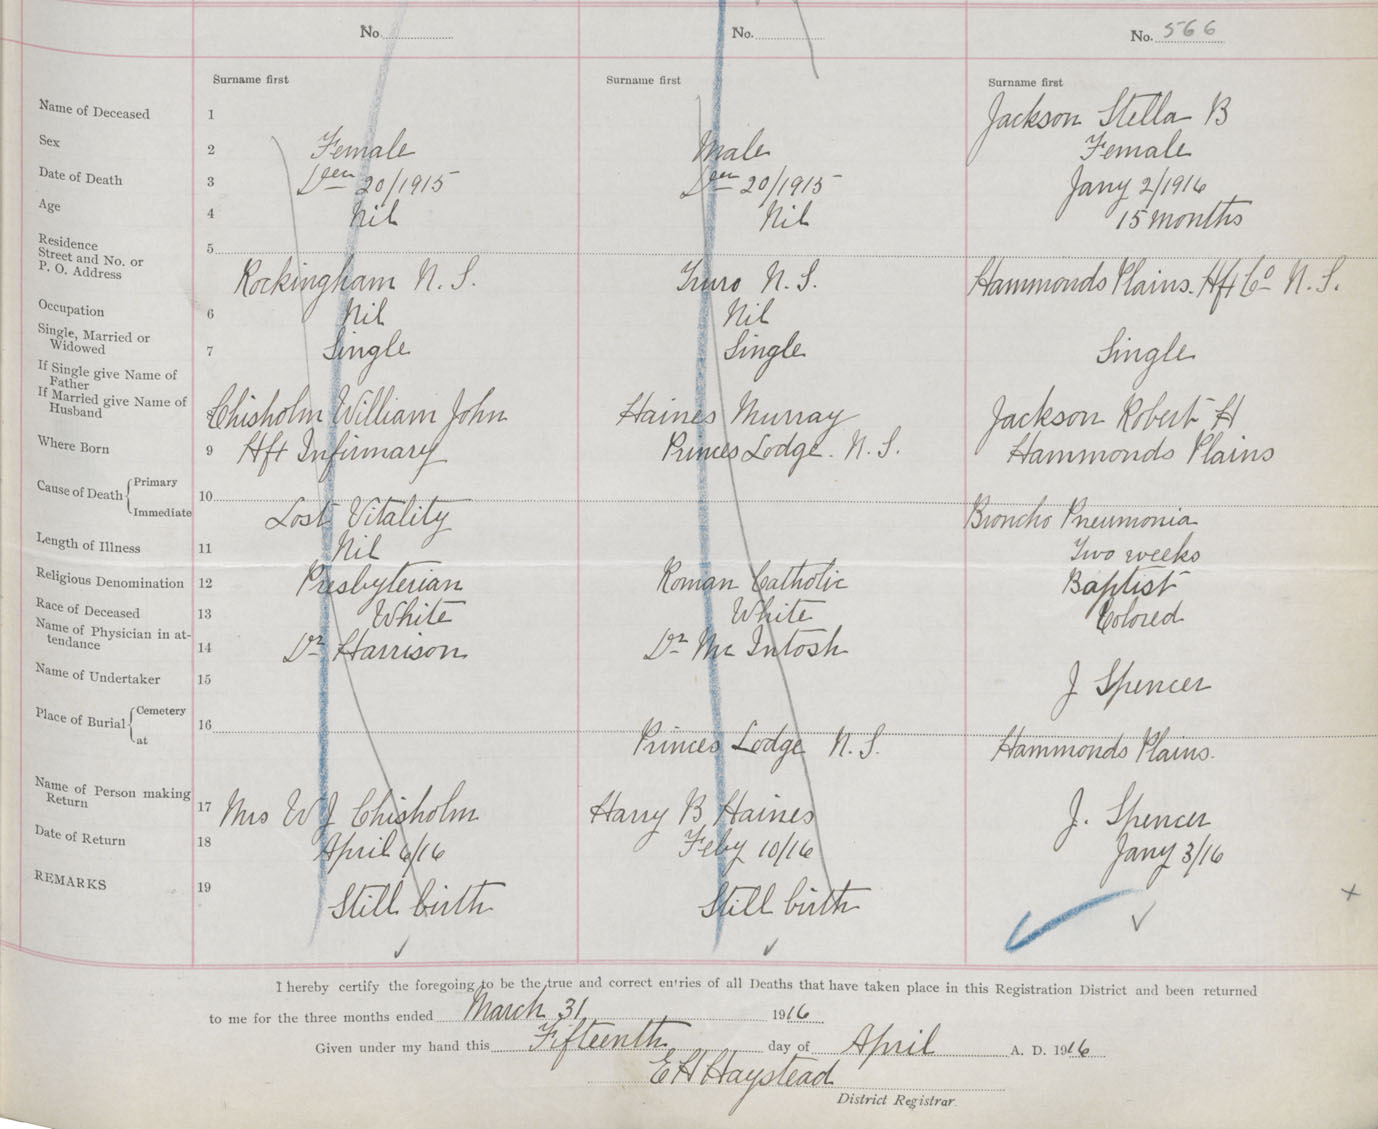 No. No. No. 566
Surname first Surname first Surname first
Name of Deceased 1 Jackson Stella B
Sex 2 Female Male Female
Date of Death 3 Decr 20/1915 Decr 20/1915 Jany 2/1916
Age 4 Nil Nil 15 months
Residence
Street and No. or 5
P. O. Address Rockingham N. S. Truro N. S. Hammonds Plains. Hfx Co N. S.
Occupation 6 Nil Nil
Single, Married or
Widowed 7 Single Single Single
If Single give Name of
Father
If Married give Name of
Husband 8 Chisholm William John Haines Murray Jackson Robert H
Where Born 9 Hfx Infirmary Princes Lodge. N. S. Hammonds Plains
Cause of Death Primary 10
Immediate Lost Vitality Broncho Pneumonia
Length of Illness 11 Nil Two weeks
Religious Denomination 12 Presbyterian Roman Catholic Baptist
Race of Deceased 13 White White Colored
Name of Physician in at-
tendance 14 Dr Harrison Dr Mc Intosh
Name of Undertaker 15 J Spencer
Place of Burial Cemetery 16
at Princes Lodge N. S. Hammonds Plains.
Name of Person making
Return 17 Mrs W J Chisholm Harry B Haines J. Spencer
Date of Return 18 April 6/16 Feby 10/16 Jany 3/16
REMARKS 19 Still birth Still birth
I hereby certify the foregoing to be the true and correct entries of all Deaths that have taken place in this Registration District and been returned
to me for the three months ended March 31 1916
Given under my hand this Fifteenth day of April A. D. 1916
E H Haystead
District Registrar.